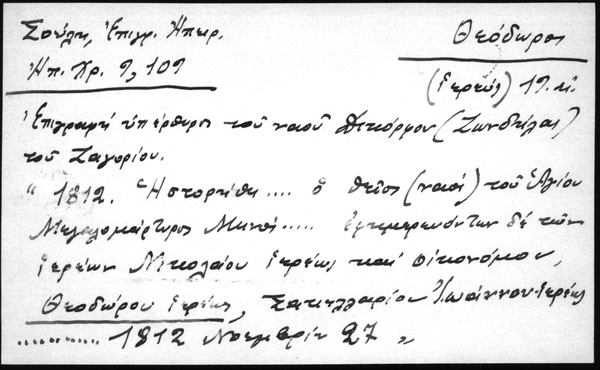 Σούλη, Ἐπιγρ. Ἠπειρ.
Θεόδωρος
Ἠπ. Χρ. 9, 109
(ἱερεύς) 19. αἰ.
Ἐπιγραφή ὑπέρθυρος τοῦ ναοῦ (
τοῦ Ζαγορίου.
" 1812. Ἡστορήθη .... ὁ θεῖος (ναός) τοῦ Ἁγίου
Μεγαλομάρτυρος Μηνᾶ..... ἐφημερευόντων δέ τῶν
ἱερέων Νικολάου ἱερέως καί οἰκονόμου,
Θεοδώρου ἱερέως, Σακελλαρίου Ἰωάννου ἱερέως
............ 1812 Νοεμβρίῳ 27 "